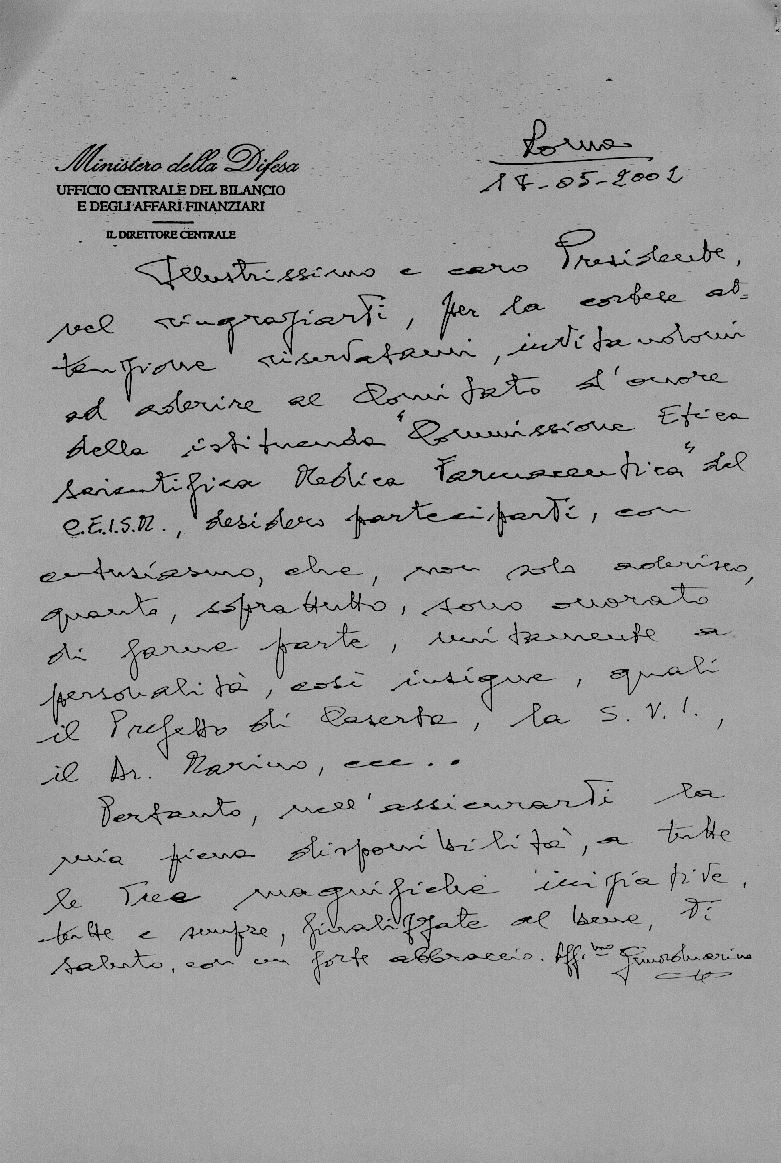 Ministero della Difesa
UFFICIO CENTRALE DEL BILANCIO
E DEGLI AFFARI FINANZIARI
IL DIRETTORE CENTRALE
Roma
17-05-2002
Illustrissimo e caro Presidente,
nel ringraziarti, per la cortese at=
tenzione riservatami, invitandomi
ad aderire al Comitato d'onore
della istituenda "Commissione Etica
Scientifica Medica Farmaceutica" del
C.E.I.S.M., desidero parteciparti, con
entusiasmo, che, non solo aderisco,
quanto, soprattutto, sono onorato
di farne parte, unitamente a
personalità, così insigne, quali
il Prefetto di Caserta, la S.V.I.,
il Dr. Marino, ecc..
Pertanto, nell'assicurarti la
mia piena disponibilità, a tutte
le Tue magnifiche iniziative,
tutte e sempre, finalizzate al bene, Ti
saluto, con un forte abbraccio. Aff.mo